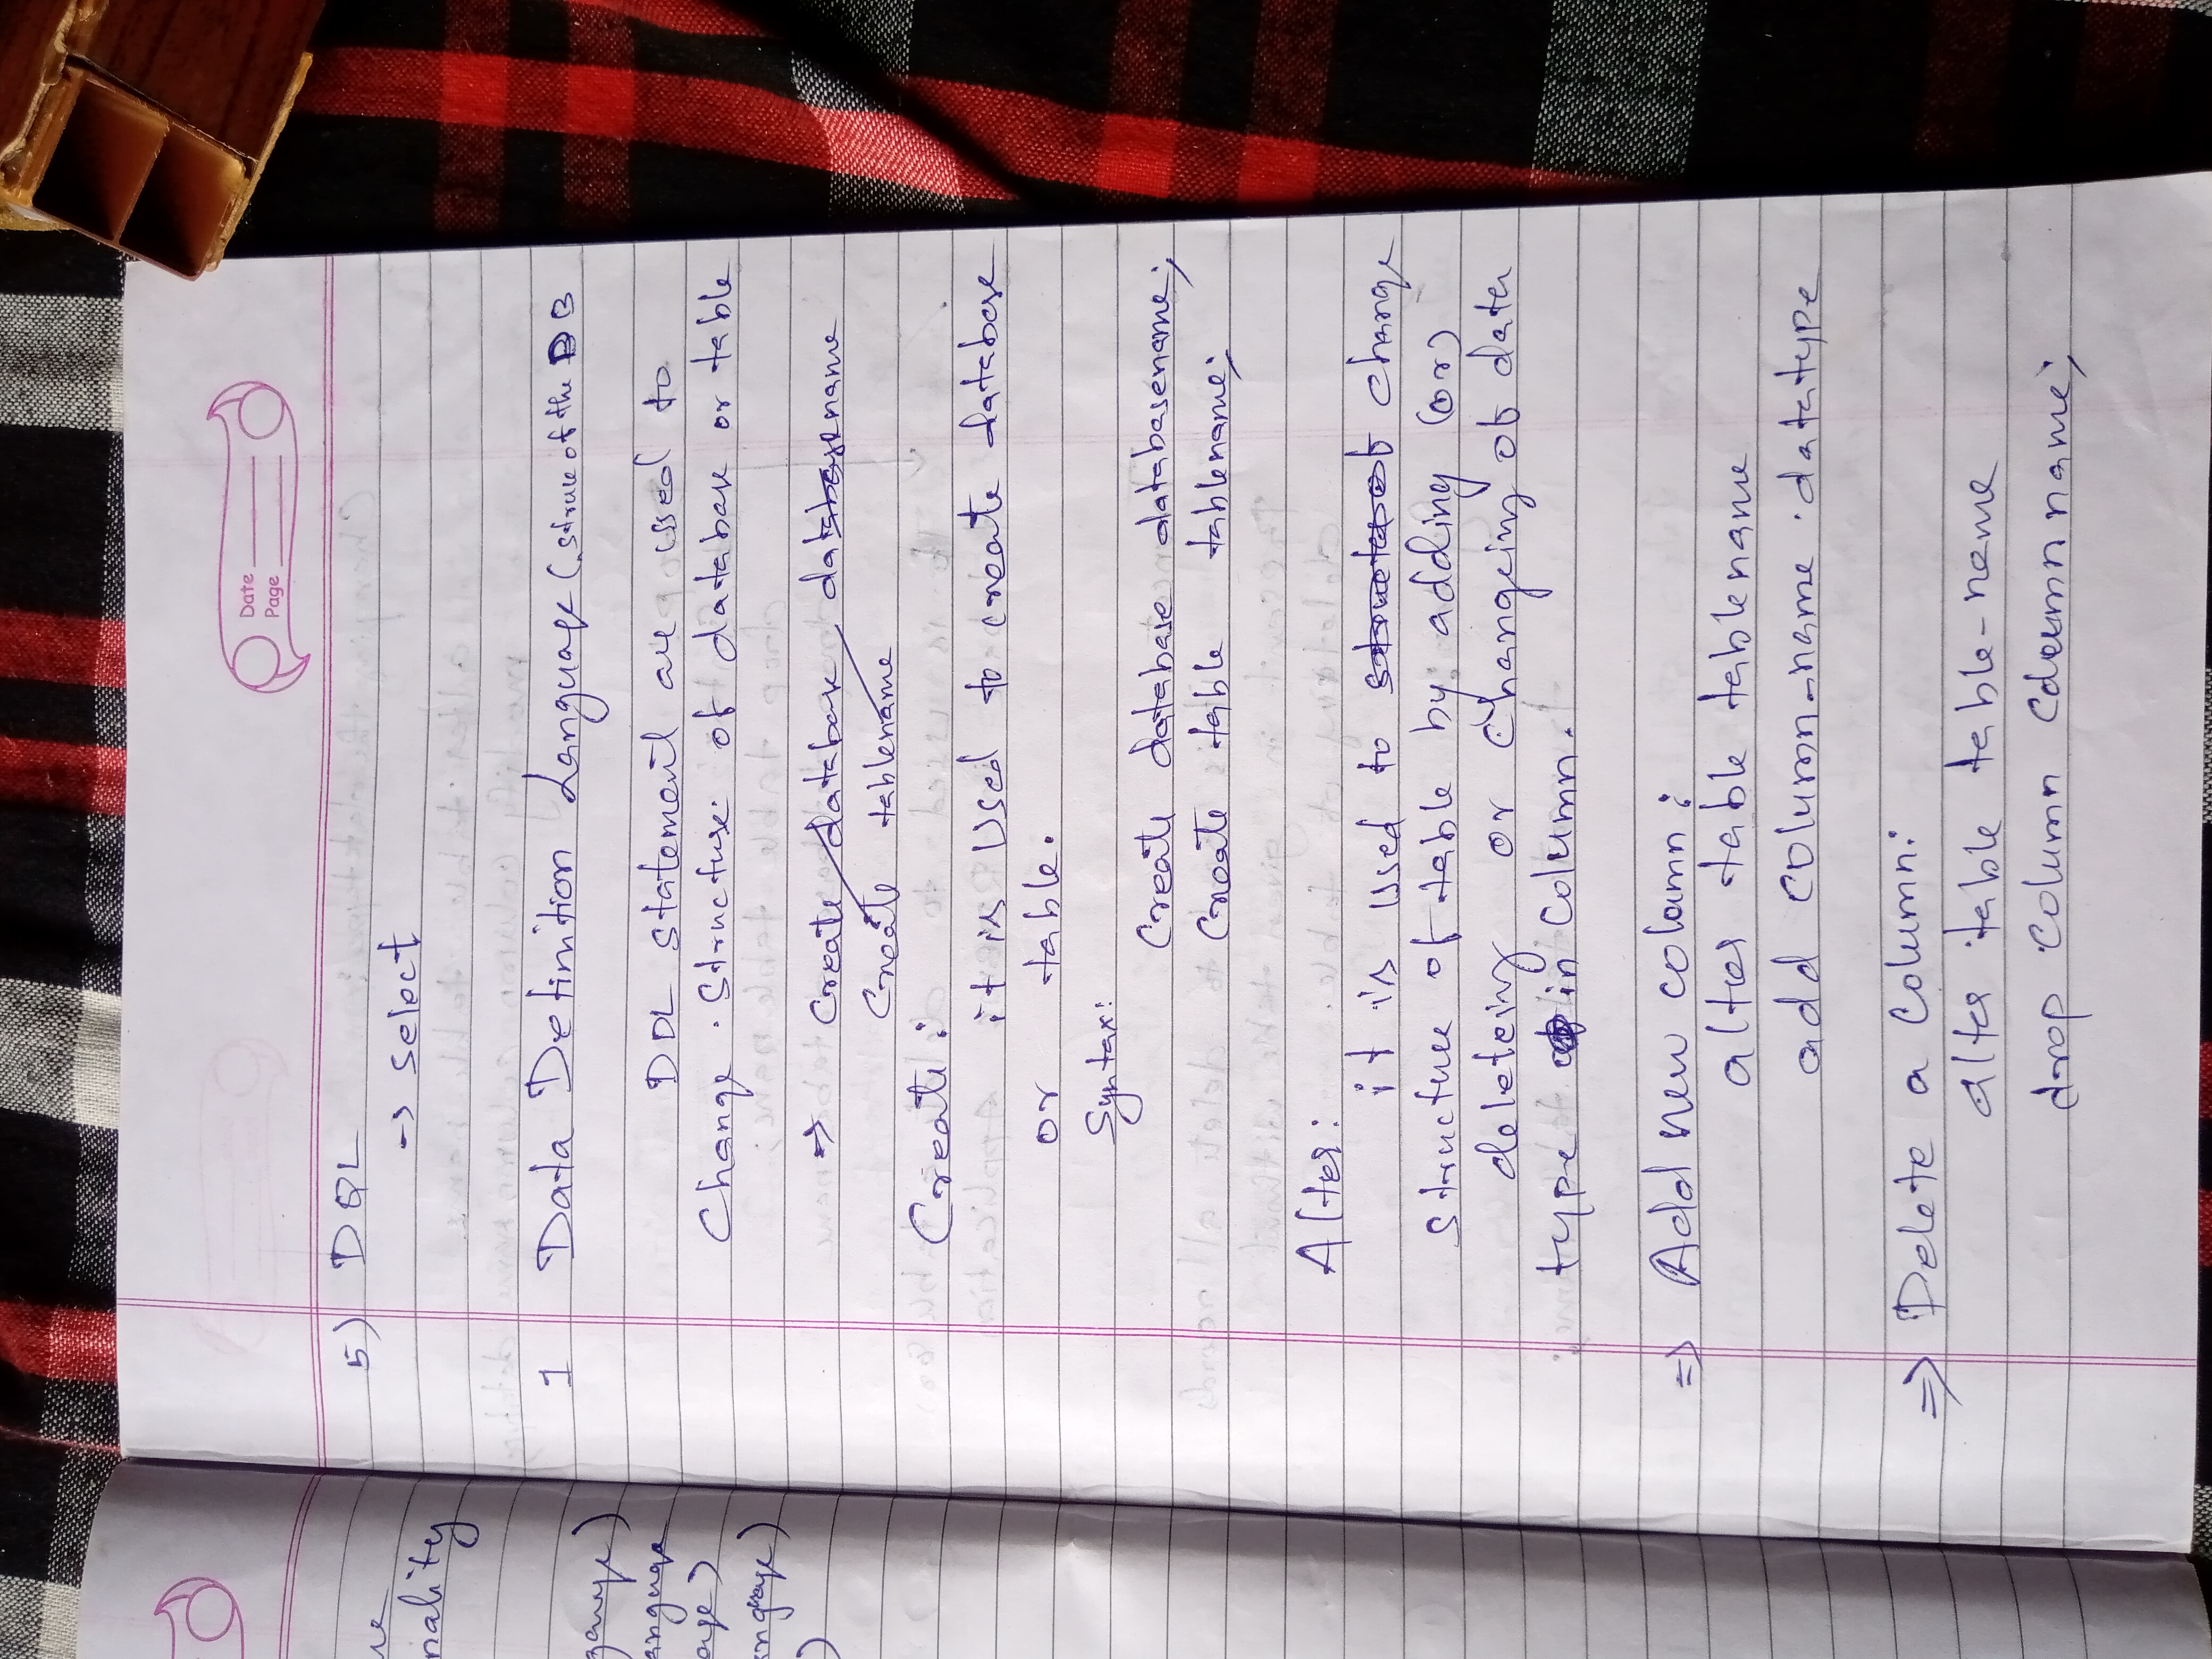 ue
nality
guage)
anguage
age)
anguage)
)
Date
Page
5) DQL
-> select
1 Data Definition Language (struc of the DB
DDL statement are used to
Change structure of database or table
=> Create database databasename
Create tablename
Create:
it is Used to create database
or table.
Syntax:
Create database databasename;
Create table tablename;
Alter:
it is used to change
structure of table by adding (or)
deleteing or changeing of data
type in Column.
=> Add new column:
alter table tablename
add column-name datatype
=> Delete a Column:
alter table table-name
drop column Column name;